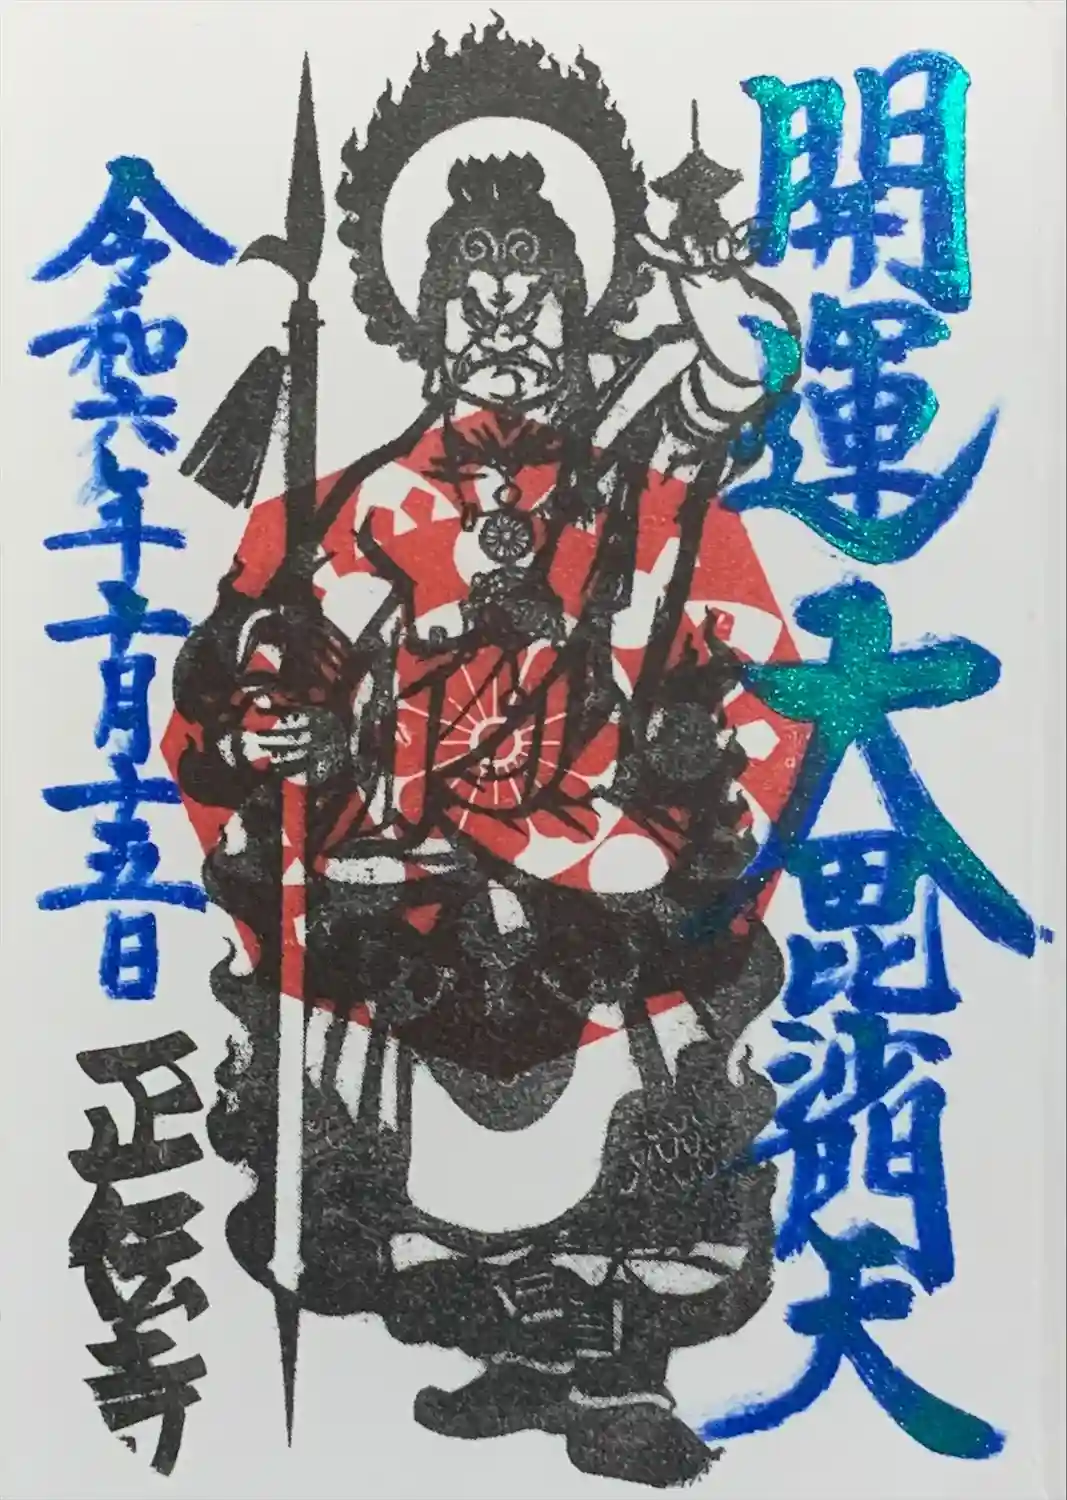 開運大毘沙門天
令和六年十月十五日
正伝寺